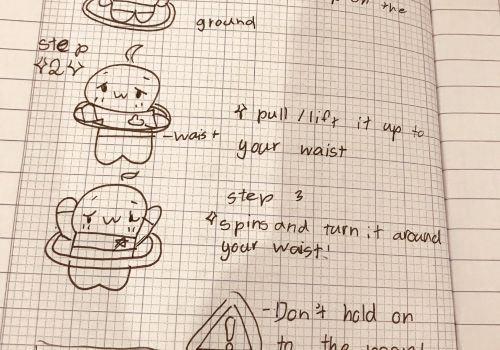 on the
ground
step
2
pull / lift it up to
your waist
-waist
step 3
spins and turn it around
your waist!
- Don't hold on
to the